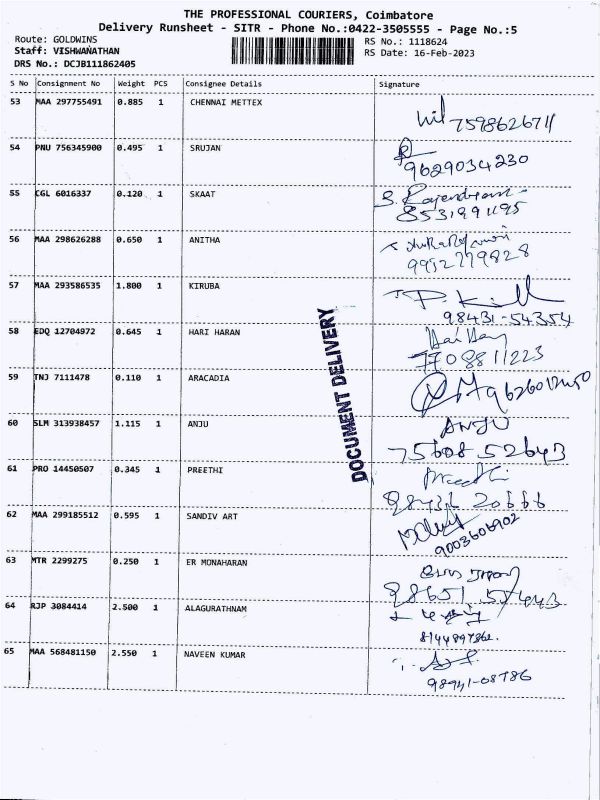 THE PROFESSIONAL COURIERS, Coimbatore
Delivery Runsheet - SITR - Phone No.:0422-3505555 - Page No.:5
Route: GOLDWINS
RS No.: 1118624
Staff: VISHWANATHAN
RS Date: 16-Feb-2023
DRS No.: DCJB111862405
S No Consignment No Weight PCS Consignee Details Signature
53 MAA 297755491 0.885 1 CHENNAI METTEX
7598626711
54 PNU 756345900 0.495 1 SRUJAN
9629034230
55 CGL 6016337 0.120 1 SKAAT
8531991195
56 MAA 298626288 0.650 1 ANITHA
9992779828
57 MAA 293586535 1.800 1 KIRUBA
98431-54354
58 EDQ 12704972 0.645 1 HARI HARAN
7708811223
59 TNJ 7111478 0.110 1 ARACADIA
60 SLM 313938457 1.115 1 ANJU
ANJU
75608 52643
61 PRO 14450507 0.345 1 PREETHI
Preethi
62 MAA 299185512 0.595 1 SANDIV ART
9003606902
63 MTR 2299275 0.250 1 ER MONAHARAN
64 RJP 3084414 2.500 1 ALAGURATHNAM
65 MAA 568481150 2.550 1 NAVEEN KUMAR
98941-08786
DOCUMENT DELIVERY